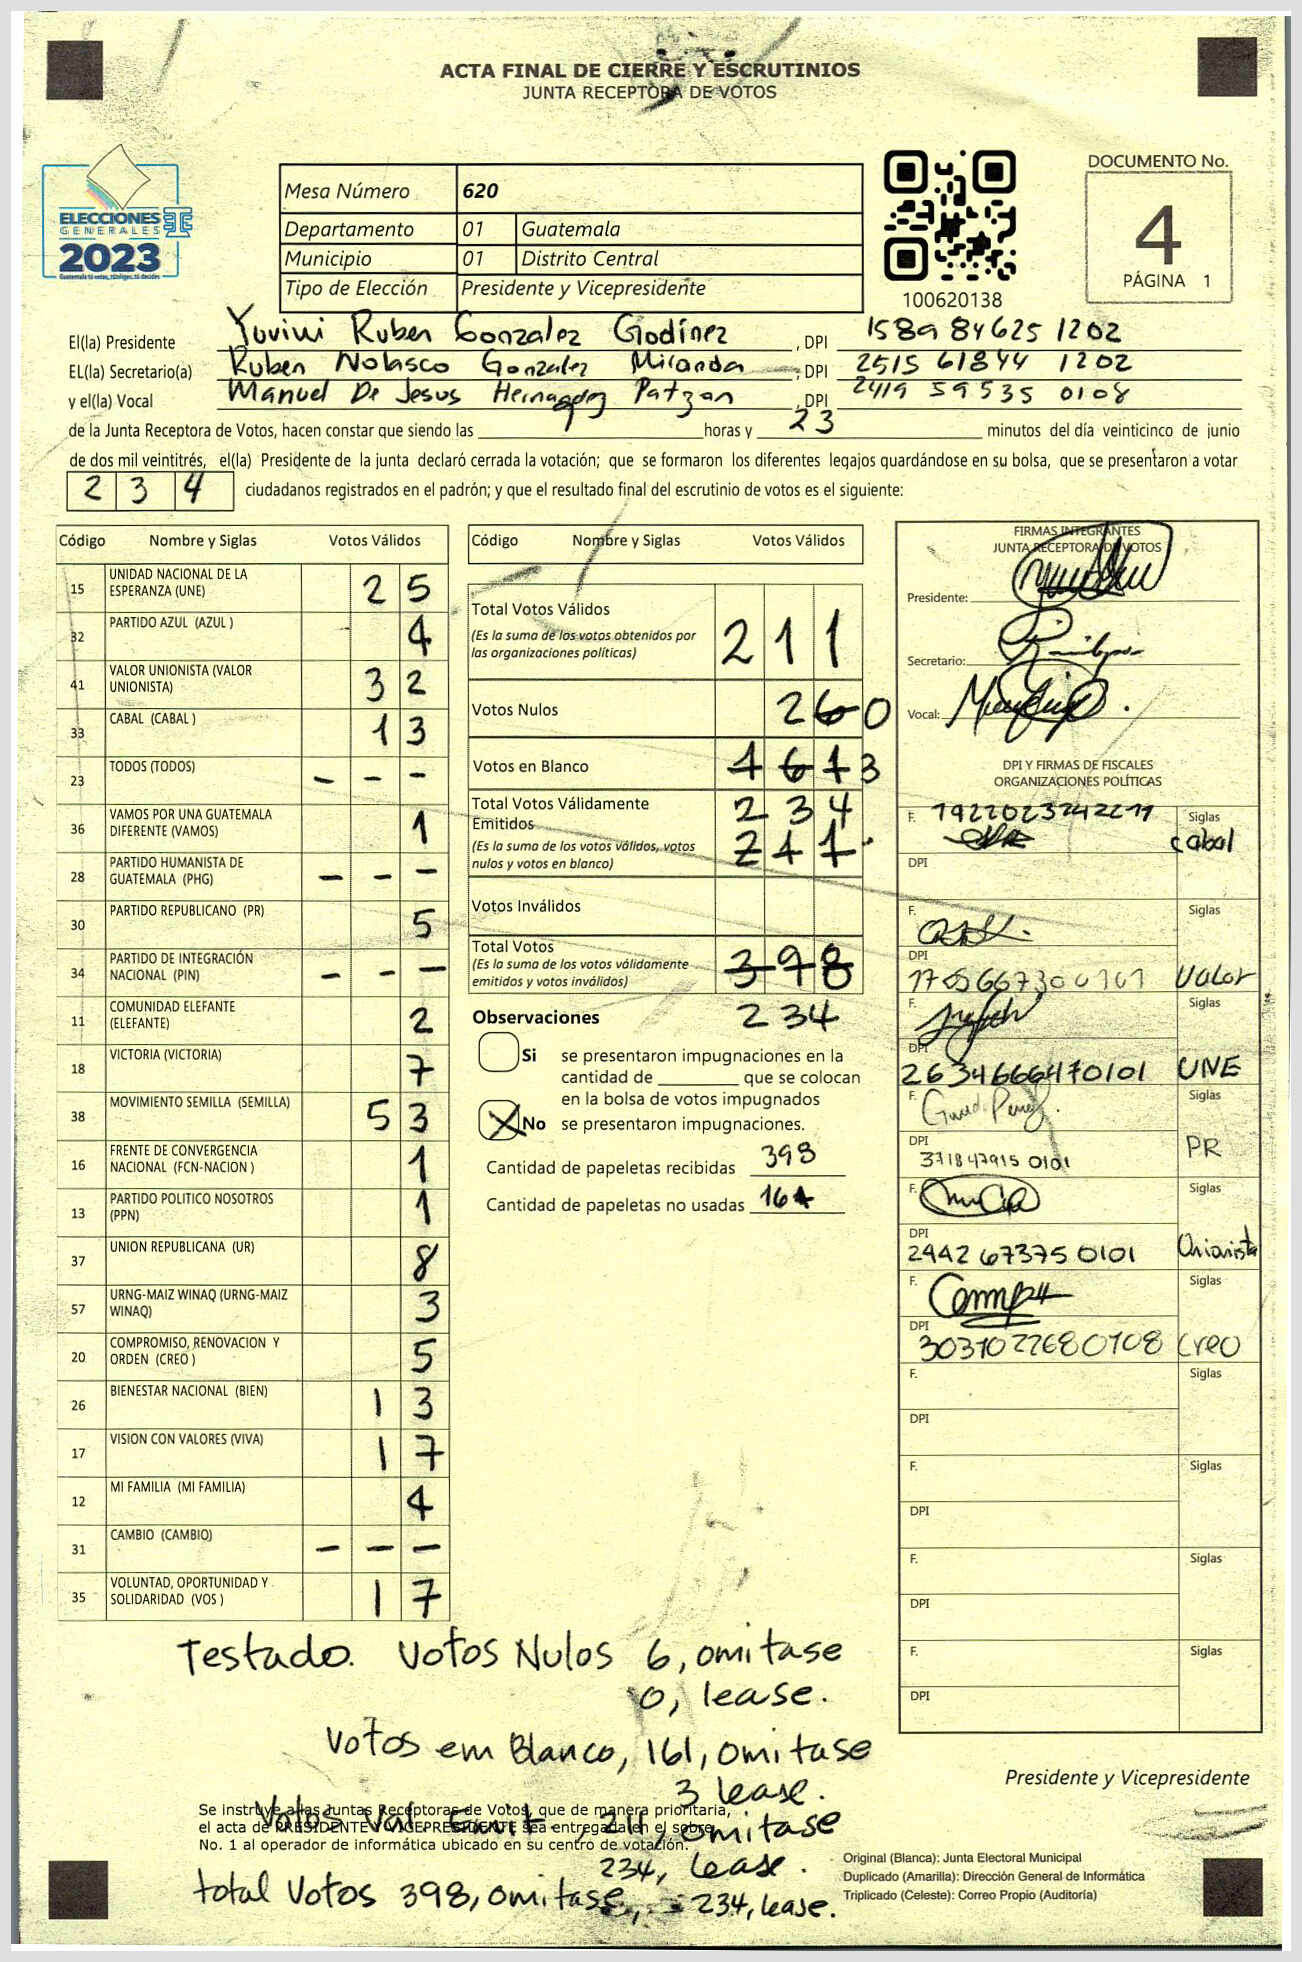 ACTA FINAL DE CIERRE Y ESCRUTINIOS
JUNTA RECEPTORA DE VOTOS
ELECCIONES
GENERALES
2023
Guatemala tú votas, tú eliges, tú decides
Mesa Número 620
Departamento 01 Guatemala
Municipio 01 Distrito Central
Tipo de Elección Presidente y Vicepresidente
100620138
DOCUMENTO No.
4
PÁGINA 1
El(la) Presidente Yuvini Ruben Gonzalez Godínez , DPI 1589 84625 1202
EL(la) Secretario(a) Ruben Nolasco Gonzalez Miranda , DPI 2515 61844 1202
y el(la) Vocal Manuel De Jesus Hernandez Patzan , DPI 2419 59535 0108
de la Junta Receptora de Votos, hacen constar que siendo las horas y 23 minutos del día veinticinco de junio
de dos mil veintitrés, el(la) Presidente de la junta declaró cerrada la votación; que se formaron los diferentes legajos guardándose en su bolsa, que se presentaron a votar
234 ciudadanos registrados en el padrón; y que el resultado final del escrutinio de votos es el siguiente:
Código Nombre y Siglas Votos Válidos
15 UNIDAD NACIONAL DE LA ESPERANZA (UNE) 25
32 PARTIDO AZUL (AZUL ) 4
41 VALOR UNIONISTA (VALOR UNIONISTA) 32
33 CABAL (CABAL ) 13
23 TODOS (TODOS) - - -
36 VAMOS POR UNA GUATEMALA DIFERENTE (VAMOS) 1
28 PARTIDO HUMANISTA DE GUATEMALA (PHG) - - -
30 PARTIDO REPUBLICANO (PR) 5
34 PARTIDO DE INTEGRACIÓN NACIONAL (PIN) - - -
11 COMUNIDAD ELEFANTE (ELEFANTE) 2
18 VICTORIA (VICTORIA) 7
38 MOVIMIENTO SEMILLA (SEMILLA) 53
16 FRENTE DE CONVERGENCIA NACIONAL (FCN-NACION ) 1
13 PARTIDO POLITICO NOSOTROS (PPN) 1
37 UNION REPUBLICANA (UR) 8
57 URNG-MAIZ WINAQ (URNG-MAIZ WINAQ) 3
20 COMPROMISO, RENOVACION Y ORDEN (CREO ) 5
26 BIENESTAR NACIONAL (BIEN) 13
17 VISION CON VALORES (VIVA) 17
12 MI FAMILIA (MI FAMILIA) 4
31 CAMBIO (CAMBIO) - - -
35 VOLUNTAD, OPORTUNIDAD Y SOLIDARIDAD (VOS ) 17
Código Nombre y Siglas Votos Válidos
Total Votos Válidos 211
(Es la suma de los votos obtenidos por
las organizaciones políticas)
Votos Nulos 260
Votos en Blanco 1613
Total Votos Válidamente 234
Emitidos
(Es la suma de los votos válidos, votos 211
nulos y votos en blanco)
Votos Inválidos
Total Votos
(Es la suma de los votos válidamente 398
emitidos y votos inválidos)
234
Observaciones
Si se presentaron impugnaciones en la
cantidad de que se colocan
en la bolsa de votos impugnados
X No se presentaron impugnaciones.
Cantidad de papeletas recibidas 398
Cantidad de papeletas no usadas 164
FIRMAS INTEGRANTES
JUNTA RECEPTORA DE VOTOS
Presidente:
Secretario:
Vocal:
DPI Y FIRMAS DE FISCALES
ORGANIZACIONES POLÍTICAS
F. Siglas
cabal
DPI
F. Siglas
DPI
Valor
F. Siglas
DPI
2634666470101 UNE
F. Siglas
DPI
371847915 0101 PR
F. Siglas
DPI
2442 67375 0101 Unionista
F. Siglas
DPI
3031022680108 Creo
F. Siglas
DPI
F. Siglas
DPI
F. Siglas
DPI
F. Siglas
DPI
Testado. Votos Nulos 6, omitase
0, lease.
Votos em Blanco, 161, omitase
3 lease.
Votos Val. Emit., 211, omitase
234, lease.
total Votos 398, omitase, 234, lease.
Se instruye a las Juntas Receptoras de Votos, que de manera prioritaria,
el acta de PRESIDENTE Y VICEPRESIDENTE sea entregada en el sobre
No. 1 al operador de informática ubicado en su centro de votación.
Presidente y Vicepresidente
Original (Blanca): Junta Electoral Municipal
Duplicado (Amarilla): Dirección General de Informática
Triplicado (Celeste): Correo Propio (Auditoría)